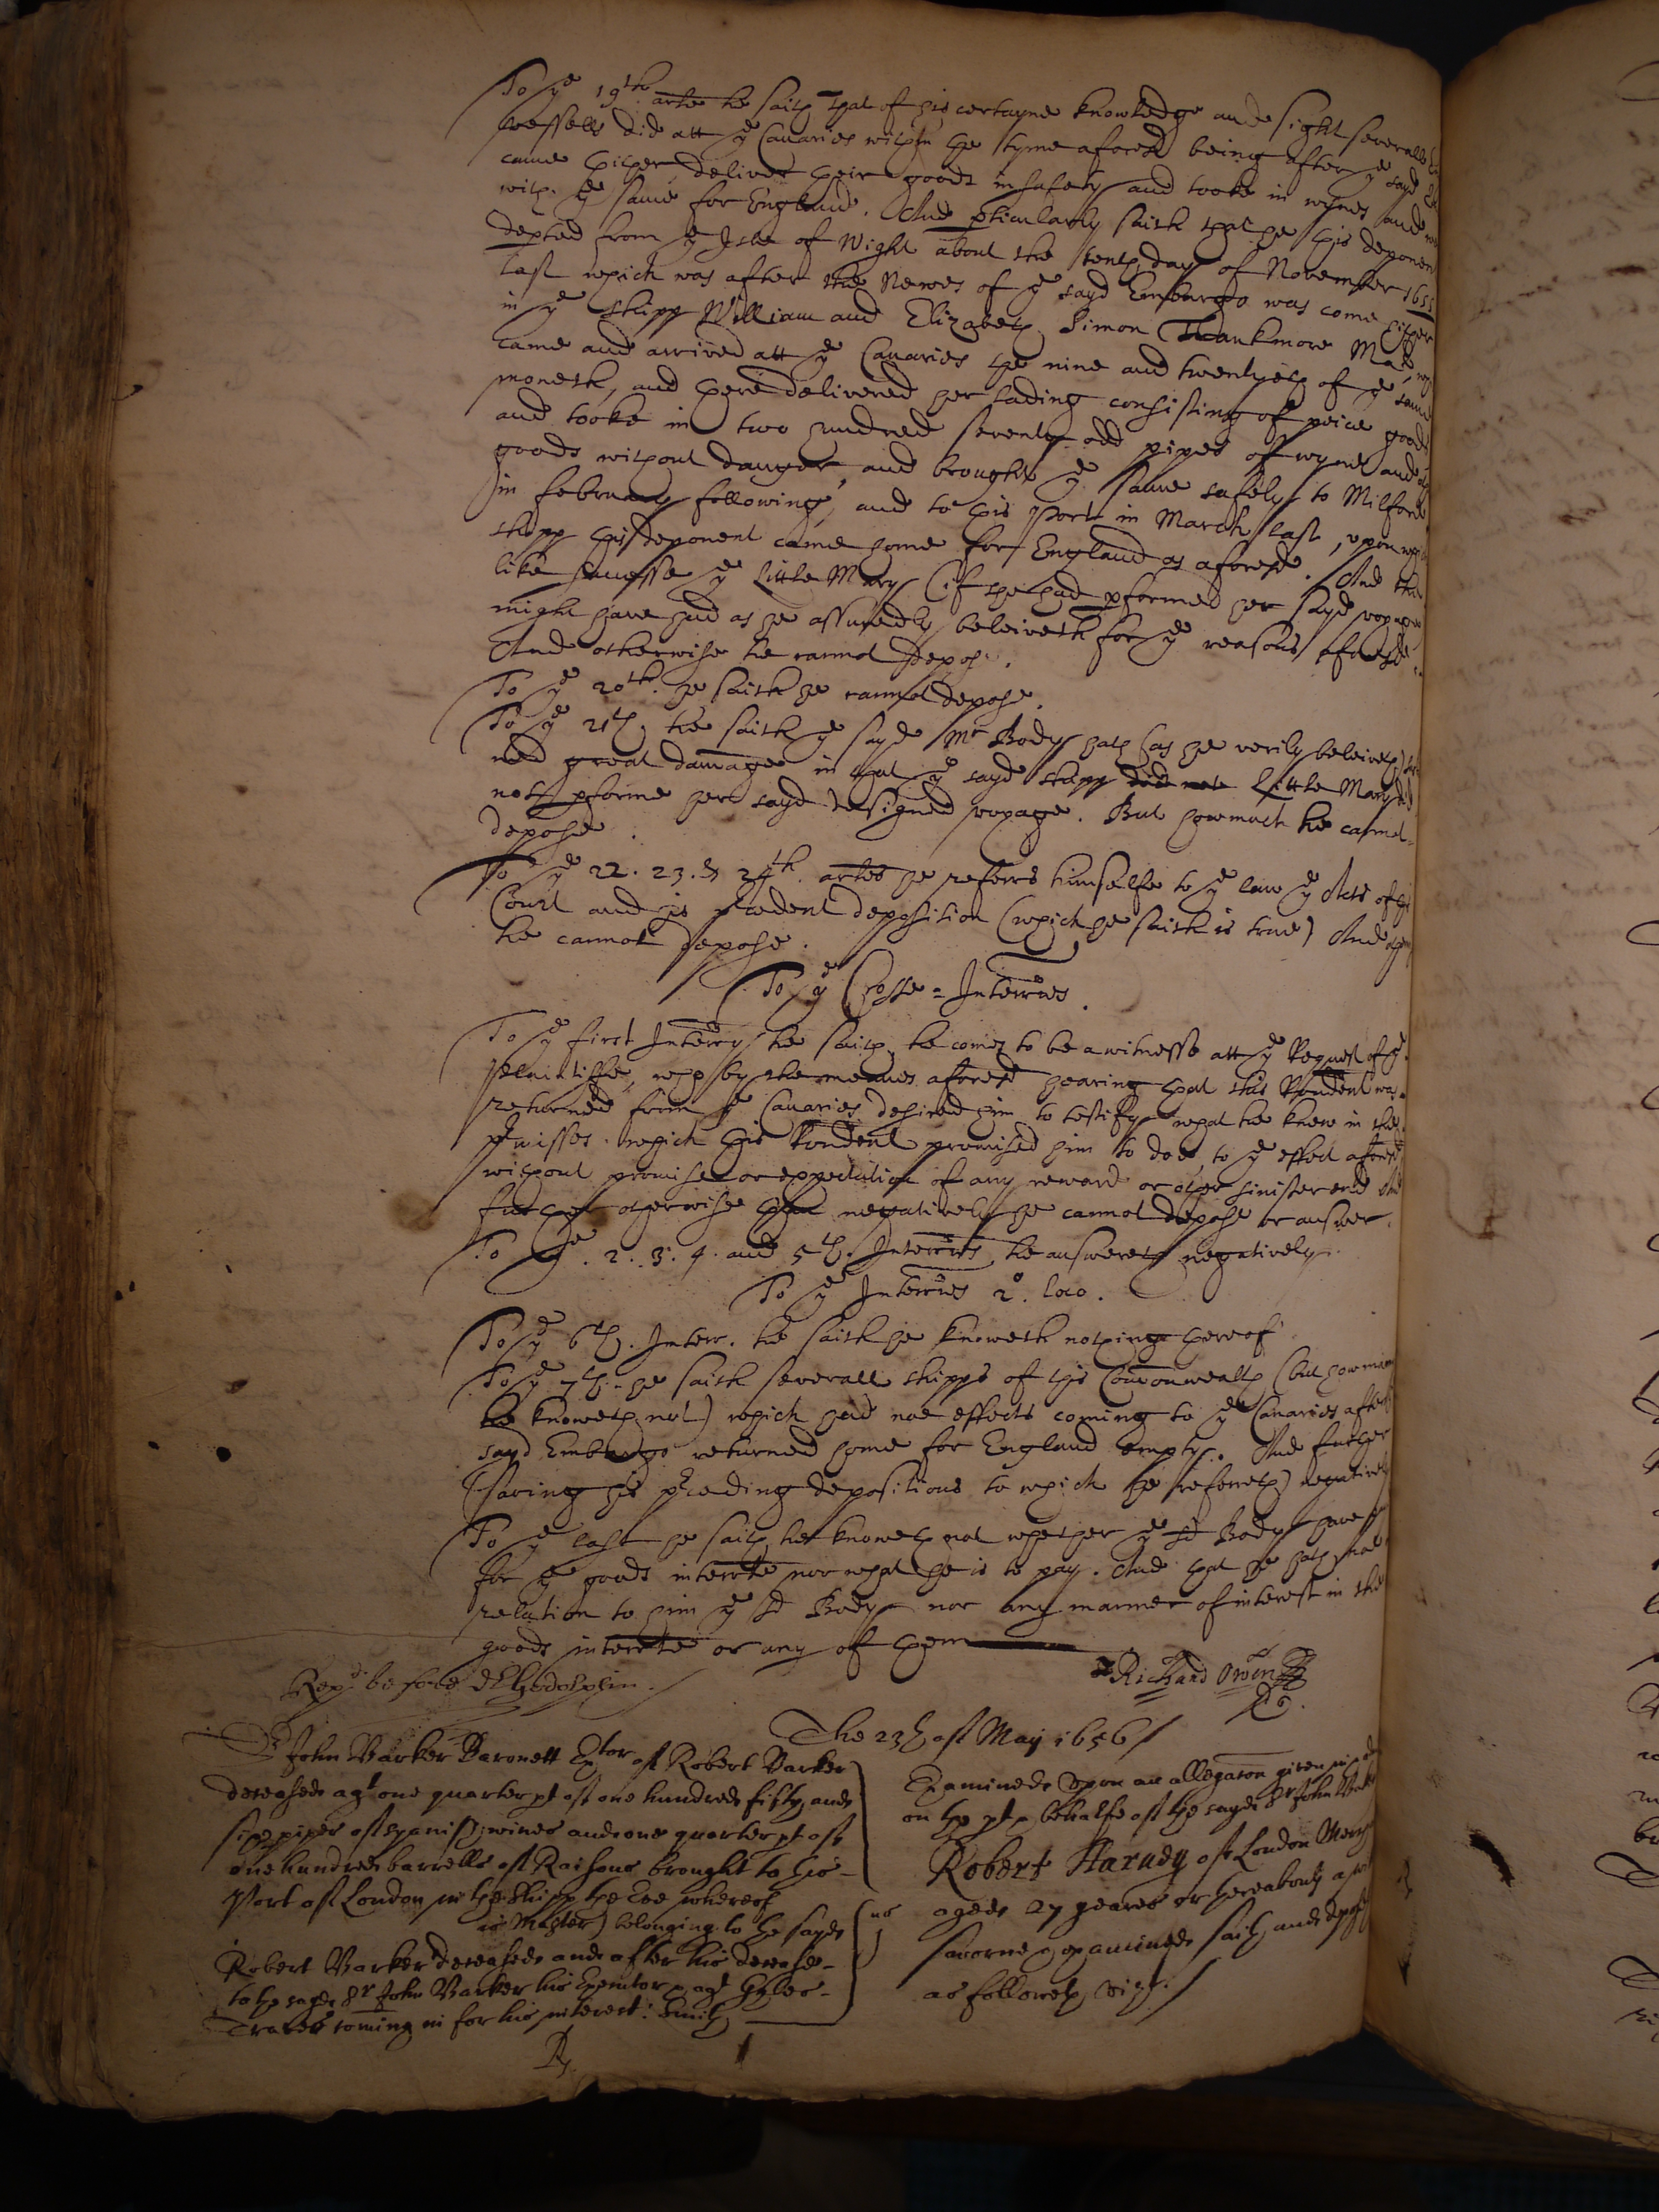 To ye 19th arte he saith that of his certayne knowledge and sight severall
vessells did att ye Canaries within the tyme aforesd being after ye sayd
came thither deliver their goods in safety and tooke in wynes and
with ye same for England. And pticularly saith that he this deponent
depted from ye Isle of Wight about the tenth day of November 1655
last which was after the Newes of ye sayd Embargo was come hither
in ye shipp William and Elizabeth Simon Thankmore Mar
came and arrived att ye Canaries the nine and twentyeth of ye same
moneth, and there delivered her lading consisting of peice goods
and tooke in two hundred seventy odd pipes of wyne and
goods without danger, and brought ye same safely to Milford
in february following, and to this Port in March last, upon
shipp this deponent came home for England as aforesd. And the
like successe ye Little Mary (if she had pformed her sayd voyage
might have had as he assuredly beleiveth for ye reasons aforesd.
And otherwise he cannot depose.
To ye 20th. he saith he cannot depose.
To ye 21th he saith ye sayd Mr Body hath (as he verily beleiveth)
ned great damage in that ye sayd shipp did not Little Mary did
not pforme her sayd designed voyage. But how much he cannot
depose.
To ye 22. 23. & 24th. artes he referrs himselfe to ye law ye Acts of this
Court and his pcedent deposition (which he saith is true) And
he cannot depose.
To ye Crosse-Interries.
To ye first Interry he saith he comes to be a witnesse att ye Request of ye
plaintiffe, who by the meanes aforesd hearing that this Rondent was
returned from ye Canaries desired him to testify what he knew in the
pmisses. which this Rondent promised him to doe, to ye effect aforesd
without promise or expectation of any reward or other sinister end And
otherwise than negatively he cannot depose or answer.
To ye. 2. 3. 4. and 5th. Interries he answereth negatively.
To ye Interries 2o. loco.
To ye 6th. Interr. he saith he knoweth nothing thereof
To ye 7th. he saith severall shipps of this Commonwealth (but how many
he knoweth not) which had noe effects coming to ye Canaries after
sayd Embargo returned home for England empty. And further
(saving his pceding depositions to which he referreth) negatively
To ye last he saith he knoweth not whether ye sd Body have
for ye goods interrte nor what he is to pay. And that he hath noe
relation to him ye sd Body nor any manner of interest in the
goods interrte or any of them
Richard Owen
Repd. before dr Godolphin.
The 23th of May 1656
Sr John Barker Baronett Extor of Robert Barker
deceased agt one quarter pt of one hundred fifty and
sixe pipes of spanish wines and one quarter pt of
one hundred barrells of Raisons brought to this
Port of London in the shipp the whereof
is Master) belonging to the sayd
Robert Barker deceased and after his decease
to the sayd Sr John Barker his Executor & agt Gyles
Travers coming in for his interest: Smith
Examined upon an allegation given in
on the pt & behalfe of the sayd Sr John
Robert Harndy of London
aged 27 yeares or thereabouts a
sworne & examined saith and
as followeth vizt.